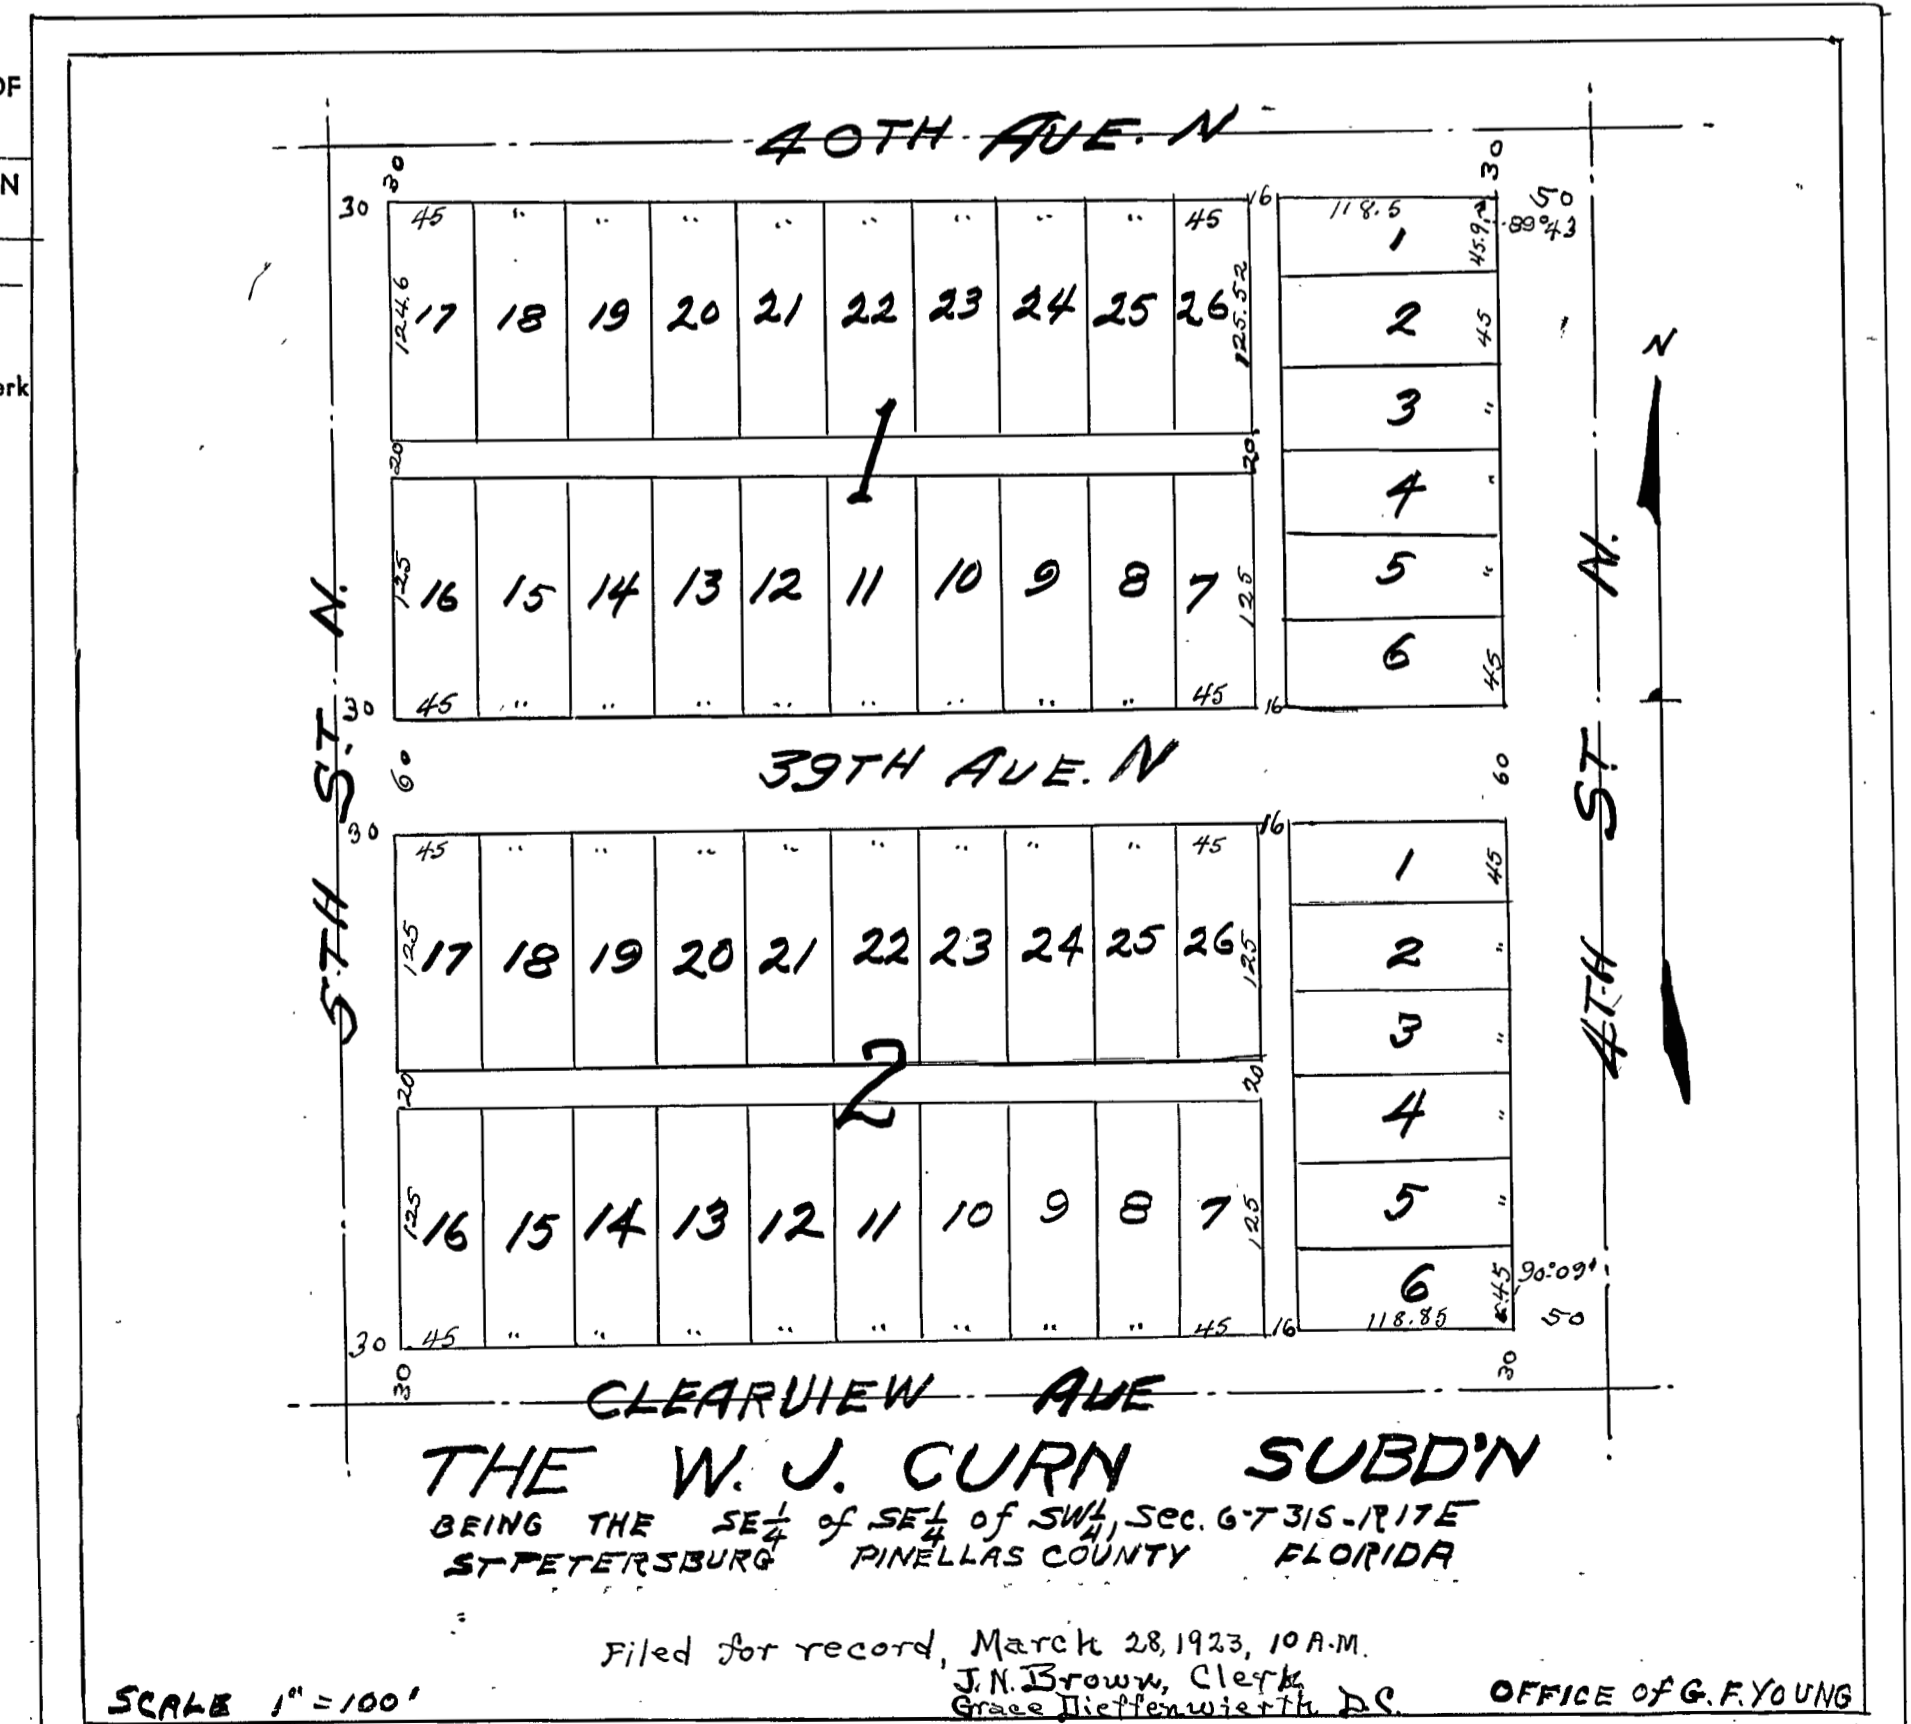 OF
N
erk
40TH AVE. N
30 30
30 45 " " " " " " " " 45 16 118.5 50
1 45.9 89°43
124.6 17 18 19 20 21 22 23 24 25 26 125.52
2 45
N
3 "
1
20 20
4 "
125 16 15 14 13 12 11 10 9 8 7 125
5 "
6 45
30 45 " " " " " " " " 45 16
60 39TH AVE. N 60
5TH ST. N.
4TH ST. N.
30 45 " " " " " " " " 45 16
1 45
125 17 18 19 20 21 22 23 24 25 26 125
2 "
3 "
2
20 20
4 "
125 16 15 14 13 12 11 10 9 8 7 125
5 "
6 45 90°09'
30 45 " " " " " " " " 45 16 118.85 50
30 30
CLEARVIEW AVE
THE W. J. CURN SUBD'N
BEING THE SE 1/4 of SE 1/4 of SW 1/4, Sec. 6-T31S-R17E
ST PETERSBURG PINELLAS COUNTY FLORIDA
Filed for record, March 28, 1923, 10 A.M.
J. N. Brown, Clerk
Grace Dieffenwierth D.C.
SCALE 1" = 100'
OFFICE of G. F. YOUNG